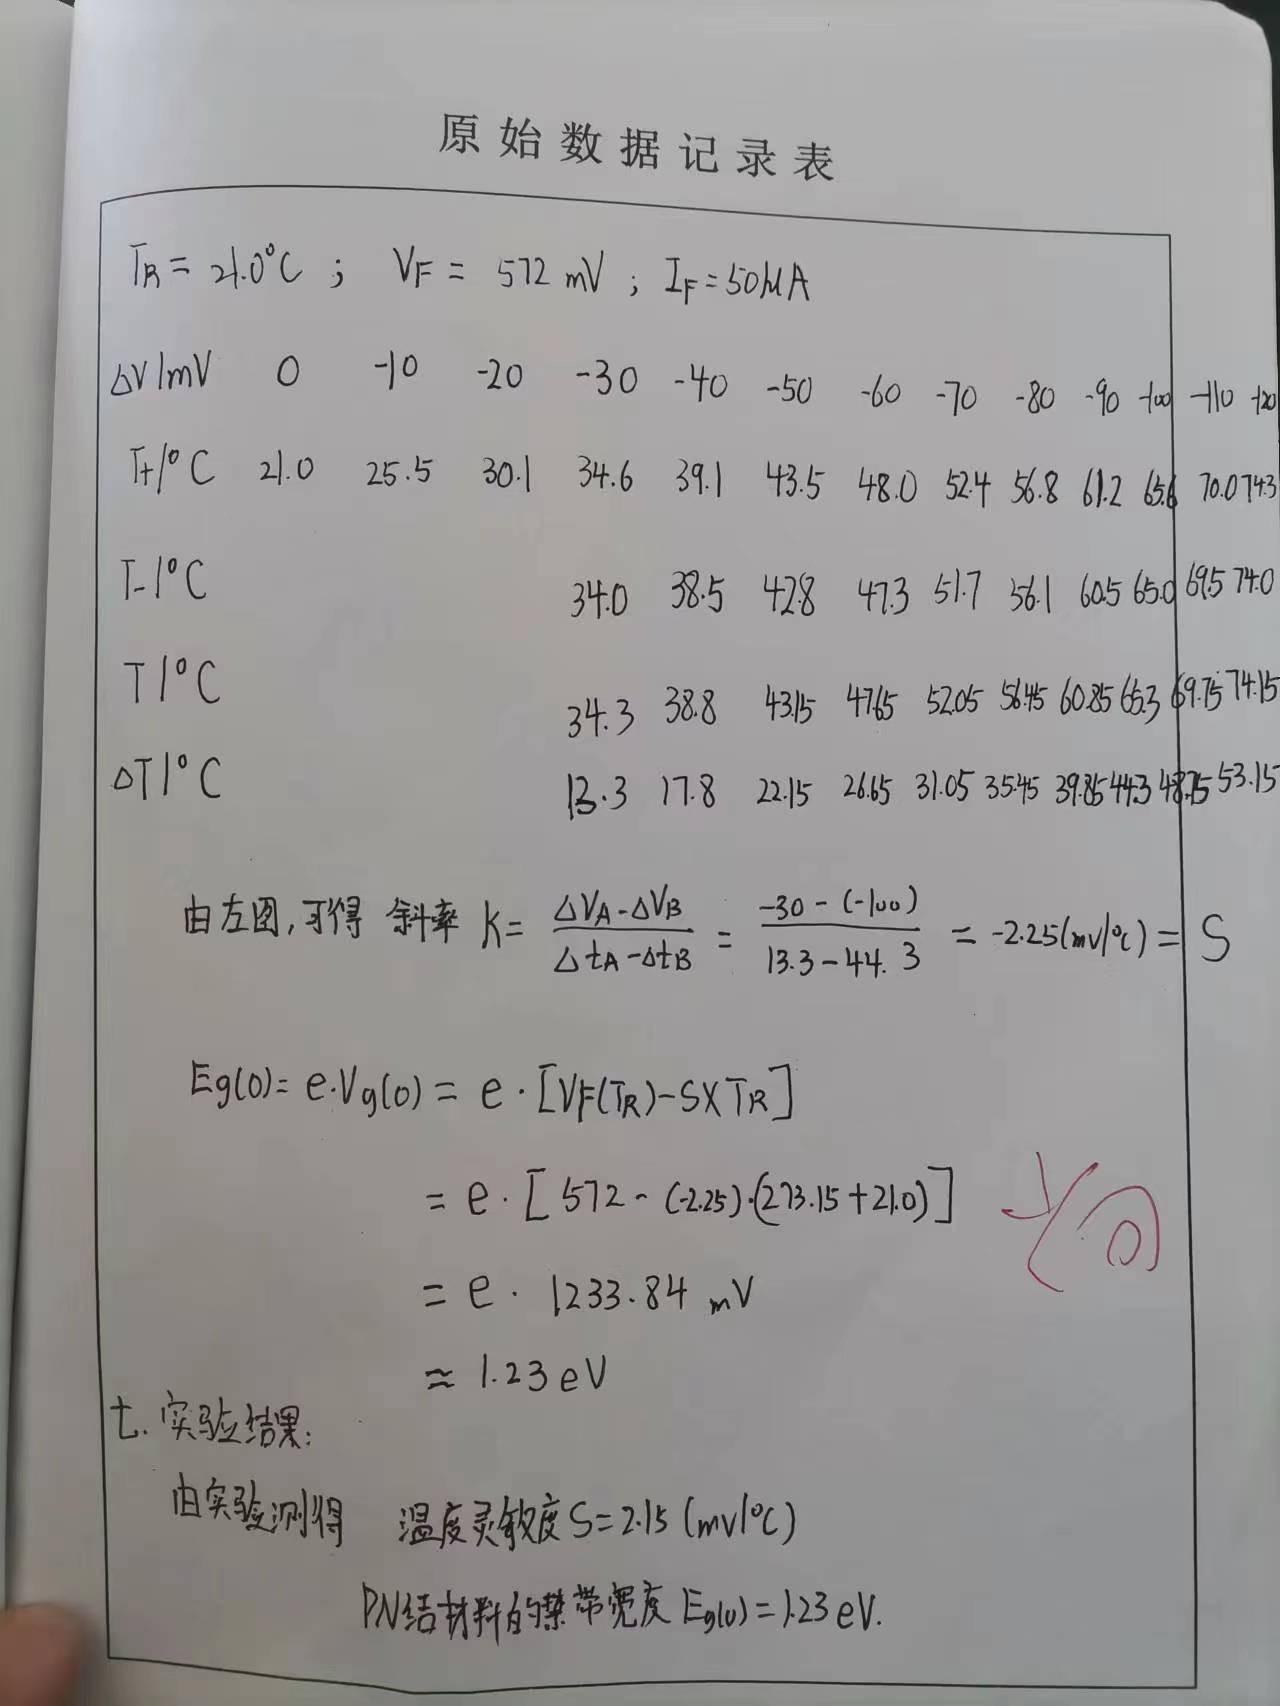 原始数据记录表
TR = 21.0°C ; VF = 572 mV ; IF = 50μA
ΔV/mV 0 -10 -20 -30 -40 -50 -60 -70 -80 -90 -100 -110 -120
T+/°C 21.0 25.5 30.1 34.6 39.1 43.5 48.0 52.4 56.8 61.2 65.6 70.0 74.3
T-/°C 34.0 38.5 42.8 47.3 51.7 56.1 60.5 65.0 69.5 74.0
T/°C 34.3 38.8 43.15 47.65 52.05 56.45 60.85 65.3 69.75 74.15
ΔT/°C 13.3 17.8 22.15 26.65 31.05 35.45 39.85 44.3 48.75 53.15
由左图,可得 斜率 K = (ΔVA-ΔVB)/(ΔtA-ΔtB) = (-30-(-100))/(13.3-44.3) = -2.25(mv/°C) = S
Eg(0) = e·Vg(0) = e·[VF(TR)-S×TR]
= e·[572-(-2.25)·(273.15+21.0)]
= e· 1233.84 mV
≈ 1.23 eV
七. 实验结果:
由实验测得 温度灵敏度 S=2.15 (mv/°C)
PN结材料的禁带宽度 Eg(0)=1.23 eV.